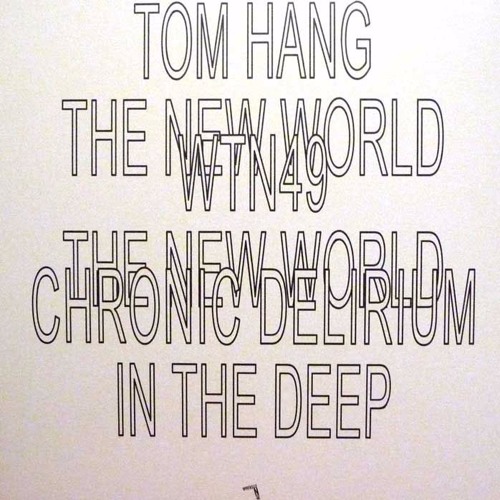 TOM HANG
THE NEW WORLD
WTN49
THE NEW WORLD
CHRONIC DELIRIUM
IN THE DEEP